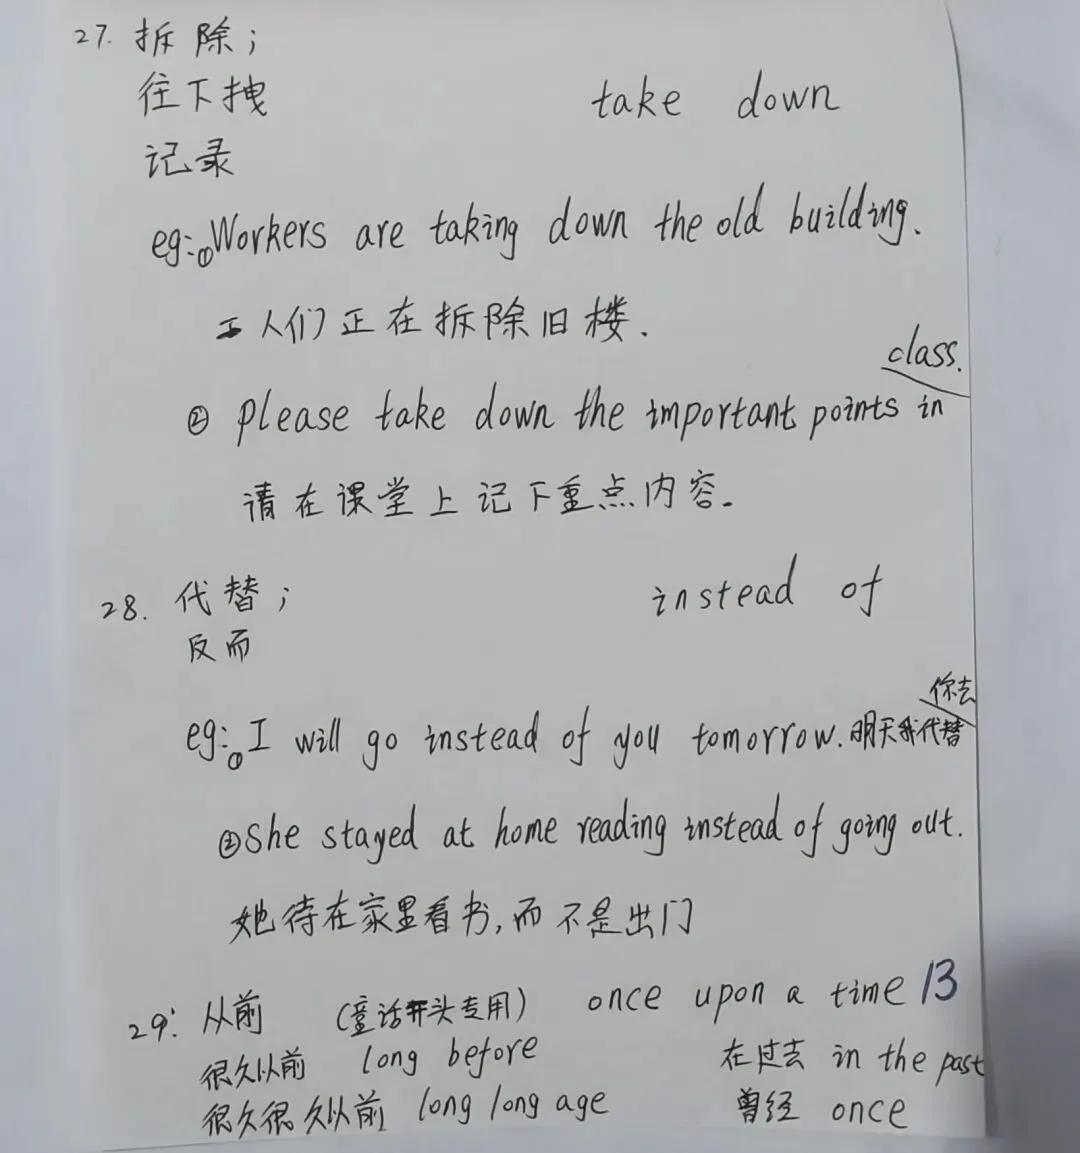 27. 拆除；
往下拽 take down
记录
eg:①Workers are taking down the old building.
工人们正在拆除旧楼.
class.
② please take down the important points in
请在课堂上记下重点内容。
28. 代替； instead of
反而
你去
eg:①I will go instead of you tomorrow.明天我代替
②She stayed at home reading instead of going out.
她待在家里看书,而不是出门
29: 从前 (童话开头专用) once upon a time 13
很久以前 long before 在过去 in the past
很久很久以前 long long age 曾经 once